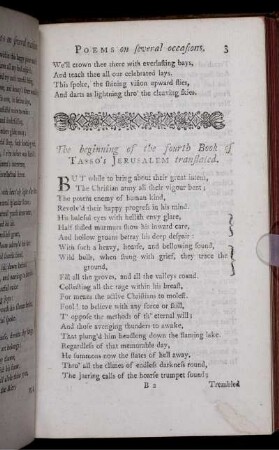 POEMS on several occasions, 3
We'll crown thee there with everlasting bays,
And teach thee all our celebrated lays.
This spoke, the shining vision upward flies,
And darts as lightning thro' the cleaving skies.
The beginning of the fourth Book of
TASSO's JERUSALEM translated.
BUT while to bring about their great intent,
The Christian army all their vigour bent;
The potent enemy of human kind,
Revolv'd their happy progress in his mind.
His baleful eyes with hellish envy glare,
Half stifled murmurs show his inward care,
And hollow groans betray his deep despair:
With such a heavy, hoarse, and bellowing sound,
Wild bulls, when stung with grief, they trace the
ground,
Fill all the groves, and all the valleys round.
Collecting all the rage within his breast,
For means the active Christians to molest.
Fool! to believe with any force or skill,
T' oppose the methods of th' eternal will;
And those avenging thunders to awake,
That plung'd him headlong down the flaming lake.
Regardless of that memorable day,
He summons now the states of hell away,
Thro' all the climes of endless darkness round,
The jarring calls of the hoarse trumpet sound;
B 2 Trembled